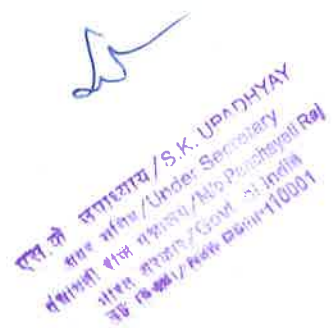 एस. के. उपाध्याय / S.K. UPADHYAY
अवर सचिव / Under Secretary
पंचायती राज मंत्रालय / M/o Panchayati Raj
भारत सरकार / Govt. of India
नई / New Delhi-110001